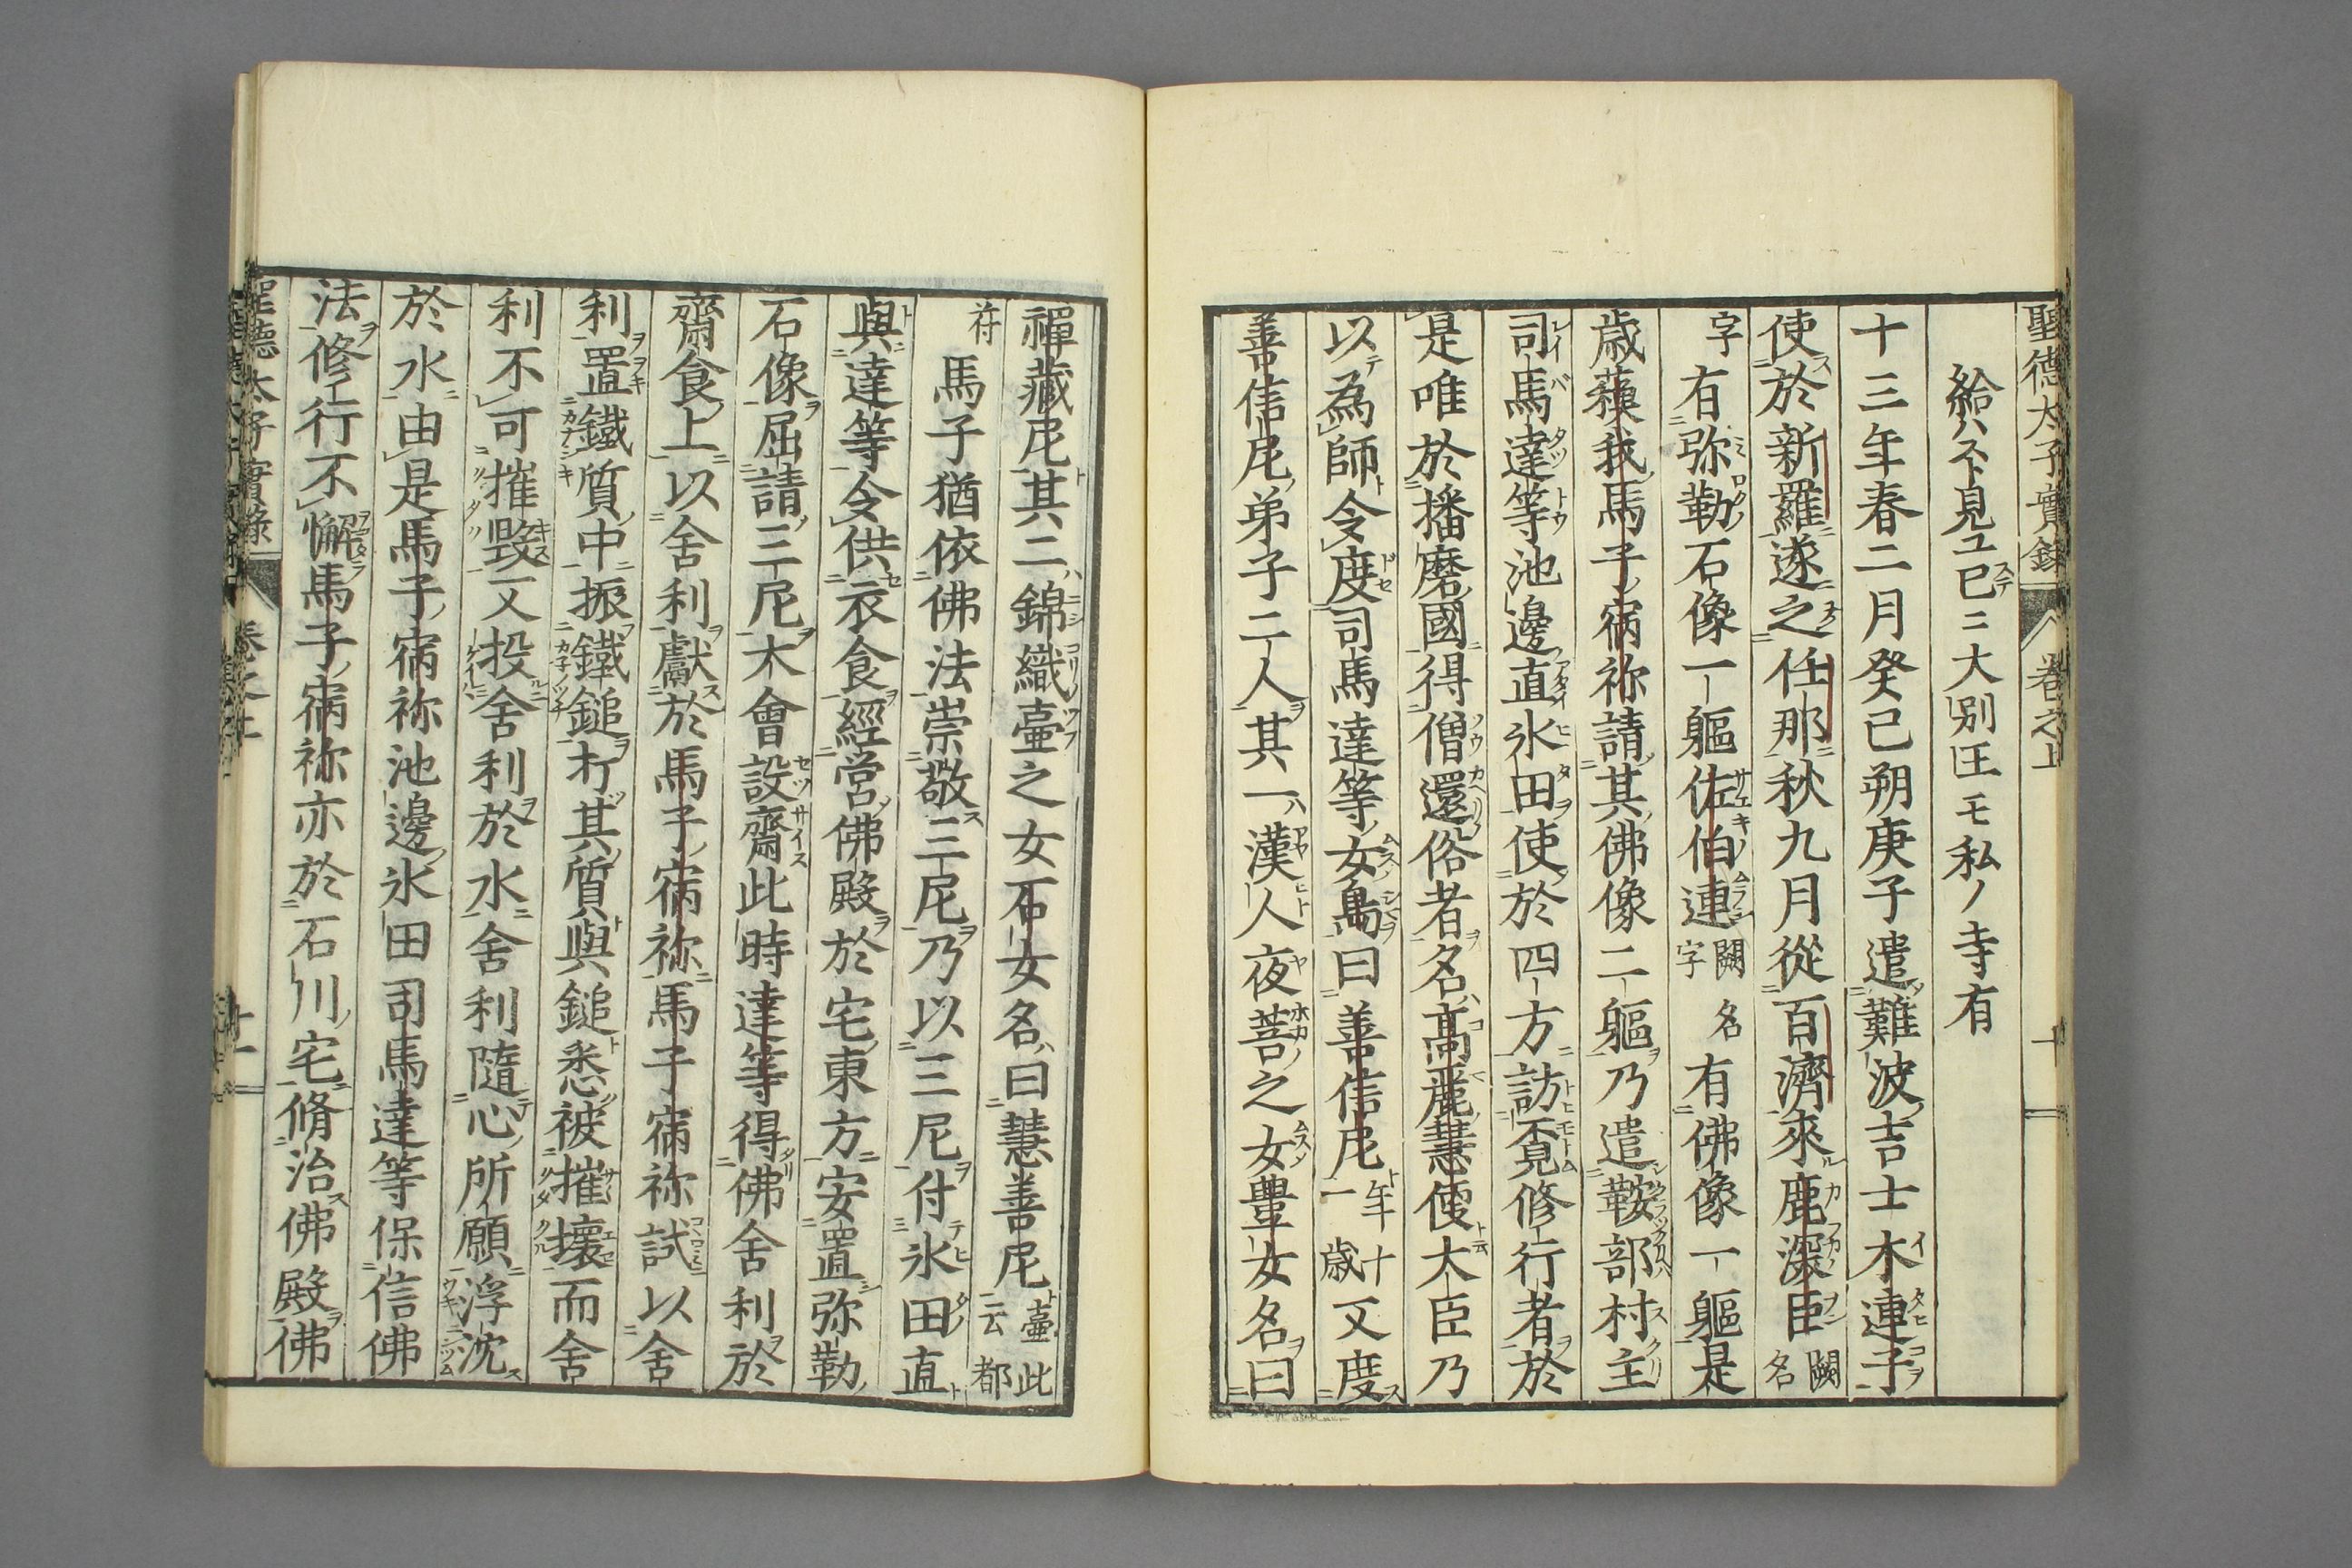 聖德太子實錄 卷之上 十
給ハスト見エ已ニ大別王モ私ノ寺有
十三年春二月癸巳朔庚子遣難波吉士木連子
使於新羅遂之任那秋九月從百濟來鹿深臣闕名
字有弥勒石像一軀佐伯連闕名字有佛像一軀是
歳蘓我馬子宿祢請其佛像二軀乃遣鞍部村主
司馬達等池邊直氷田使於四方訪覓修行者於
是唯於播磨國得僧還俗者名高麗慧便大臣乃
以為師令度司馬達等女嶋曰善信尼年十一歳又度
善信尼弟子二人其一漢人夜菩之女豊女名曰
禪藏尼其二錦織壷之女石女名曰慧善尼壷此云都
符馬子猶依佛法崇敬三尼乃以三尼付氷田直
與達等令供衣食經営佛殿於宅東方安置弥勒
石像屈請三尼大會設齋此時達等得佛舍利於
齋食上以舍利獻於馬子宿祢馬子宿祢試以舍
利置鐵質中振鐵鎚打其質與鎚悉被摧壞而舍
利不可摧毀又投舍利於水舍利隨心所願浮沈
於水由是馬子宿祢池邊氷田司馬達等保信佛
法修行不懈馬子宿祢亦於石川宅脩治佛殿佛
聖德太子實錄 卷之上 十一